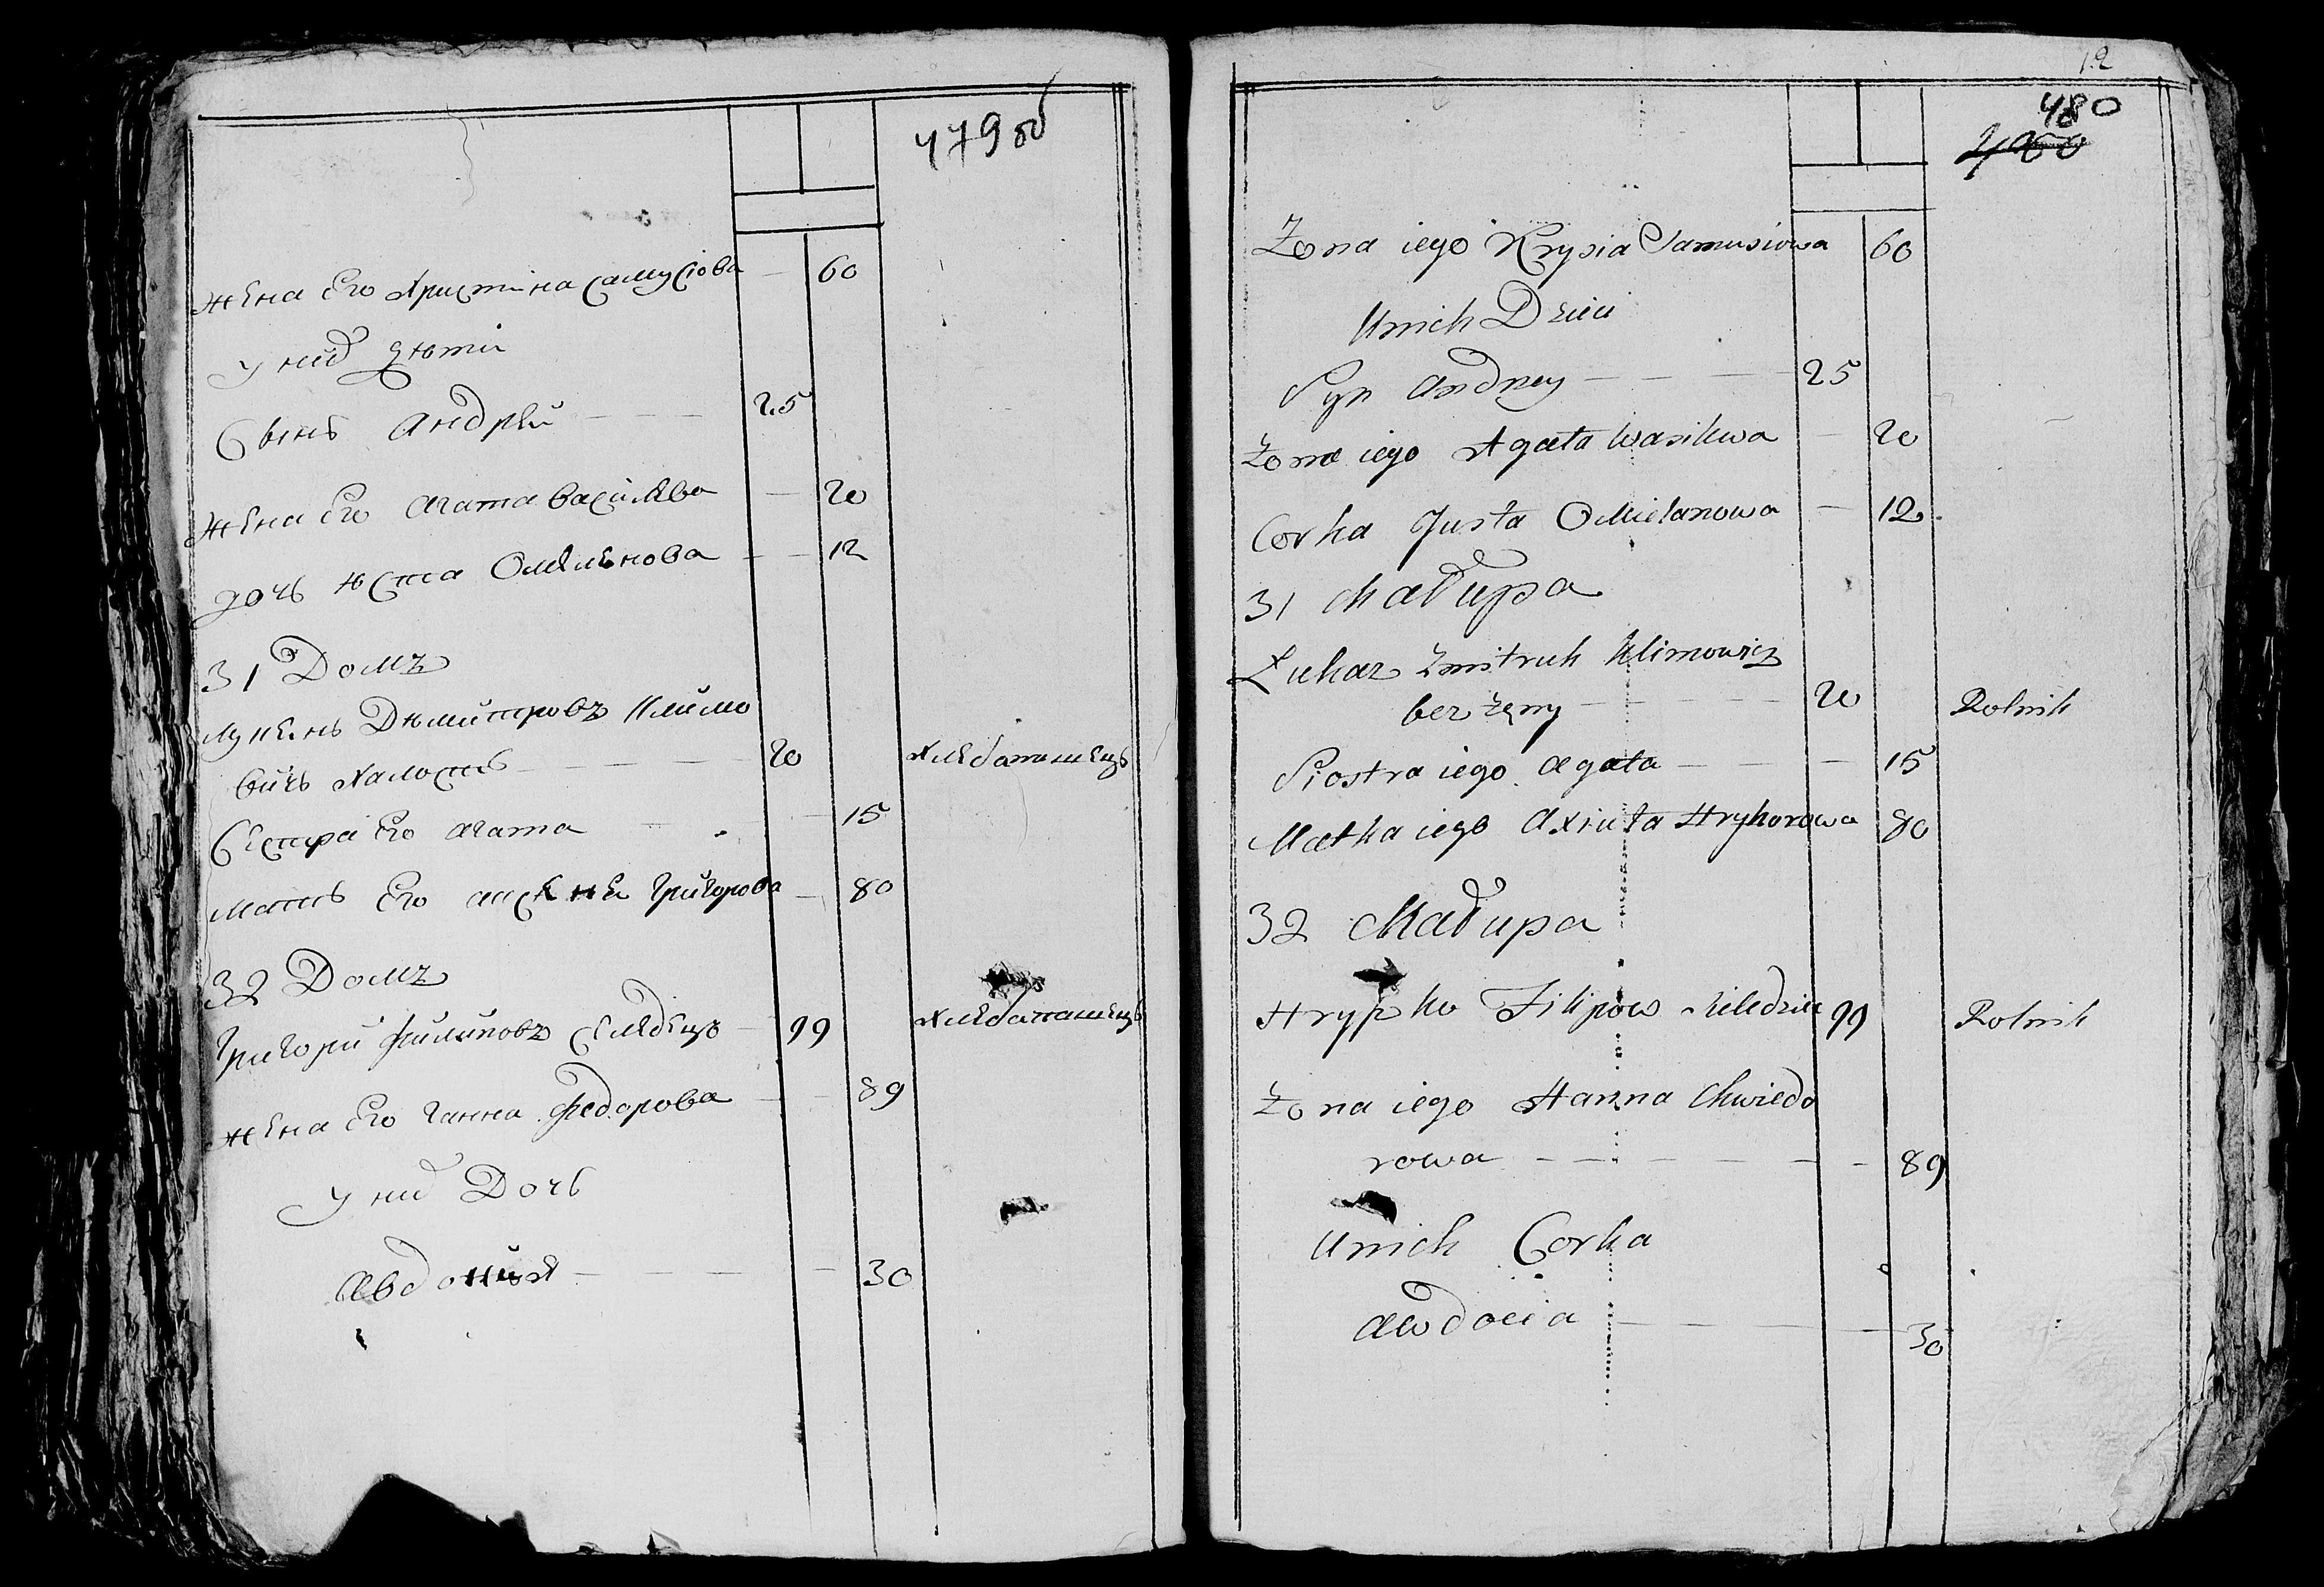 479 об
Жена Его Христина Самусiова — 60
у них дѣти
Сынъ Андрей — — — 25
Жена Его Агата Василева — 20
дочь Юста Омельянова — — 12
31 Домъ
Лукянъ Дмитровъ Климо
вичь Халостъ — — — — 20 Хлебопашецъ
Сестра Его Агата — — 15
Мать Его Аксиня Григорова — 80
32 Домъ
Григори Филиповъ Следецъ — 99 Хлебопашецъ
Жена Его Ганна Федорова — — 89
у них Дочь
Авдотия — — — — 30
12
480
Zona iego Krysia Samusiowa 60
U nich Dzieci
Syn Andrey — — — 25
Zona iego Agata Wasilewa — 20
Corka Justa Omielanowa — 12
31 Chałupa
Łukaz Zmitruk Klimowicz
bez żęny — — — — 20 Rolnik
Siostra iego Agata — — — 15
Matka iego Axiuta Hryhorowa 80
32 Chałupa
Hryszko Filipow Sieledziec 99 Rolnik
Zona iego Hanna Chwiedo
rowa — — — — — — 89
U nich Corka
Awdocia — — — — 30